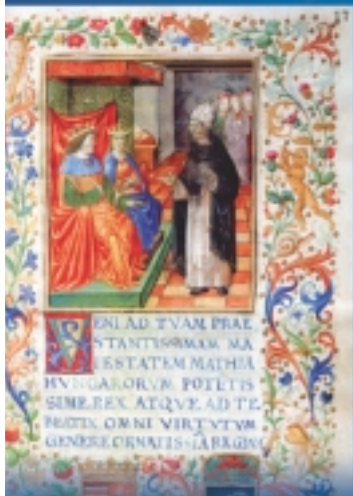 VENI AD TVAM PRAE
STANTISSIMAM MA
IESTATEM MATHIA
HVNGARORVM POTETIS
SIME REX ATQVE AD TE
BEATIX OMNI VIRTVTVM
GENERE ORNATIS